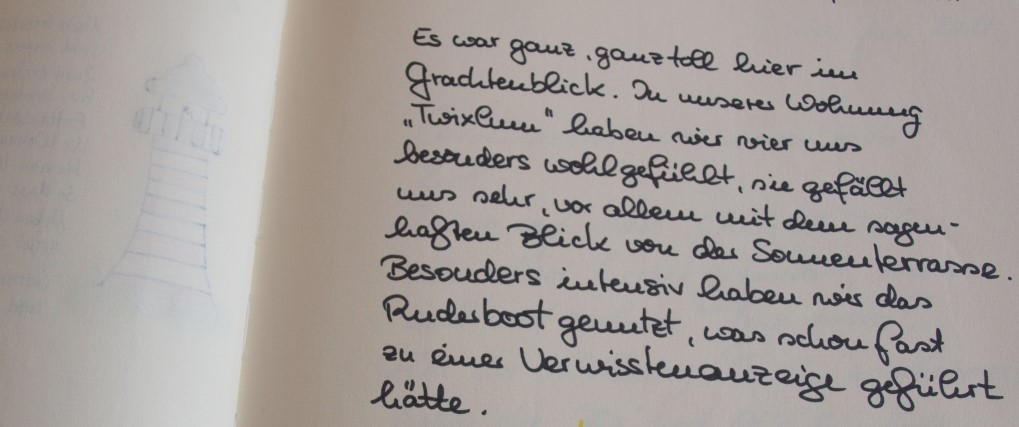 Es war ganz, ganz toll hier im
Grachtenblick. In unserer Wohnung
„Twixlum“ haben wir vier uns
besonders wohlgefühlt, sie gefällt
uns sehr, vor allem mit dem sagen-
haften Blick von der Sonnenterrasse.
Besonders intensiv haben wir das
Ruderboot genutzt, was schon fast
zu einer Vermisstenanzeige geführt
hätte.